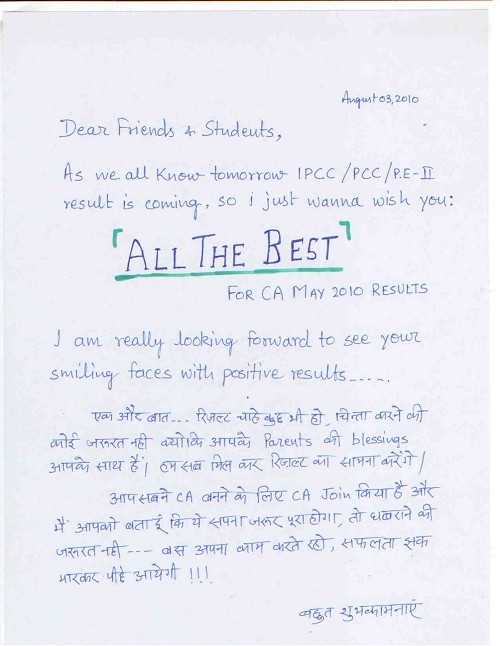 August 03, 2010
Dear Friends & Students,
As we all Know tomorrow IPCC/PCC/P.E-II
result is coming, so i just wanna wish you:
"ALL THE BEST"
FOR CA MAY 2010 RESULTS
I am really looking forward to see your
smiling faces with positive results.....
एक और बात... रिजल्ट चाहे कुछ भी हो, चिन्ता करने की
कोई जरूरत नहीं क्योंकि आपके Parents की blessings
आपके साथ हैं। हम सब मिल कर रिजल्ट का सामना करेंगे।
आप सबने CA बनने के लिए CA Join किया है और
मैं आपको बता दूं कि ये सपना जरूर पूरा होगा, तो घबराने की
जरूरत नहीं --- बस अपना काम करते रहो, सफलता झक
मारकर पीछे आयेगी !!!
बहुत शुभकामनाएं